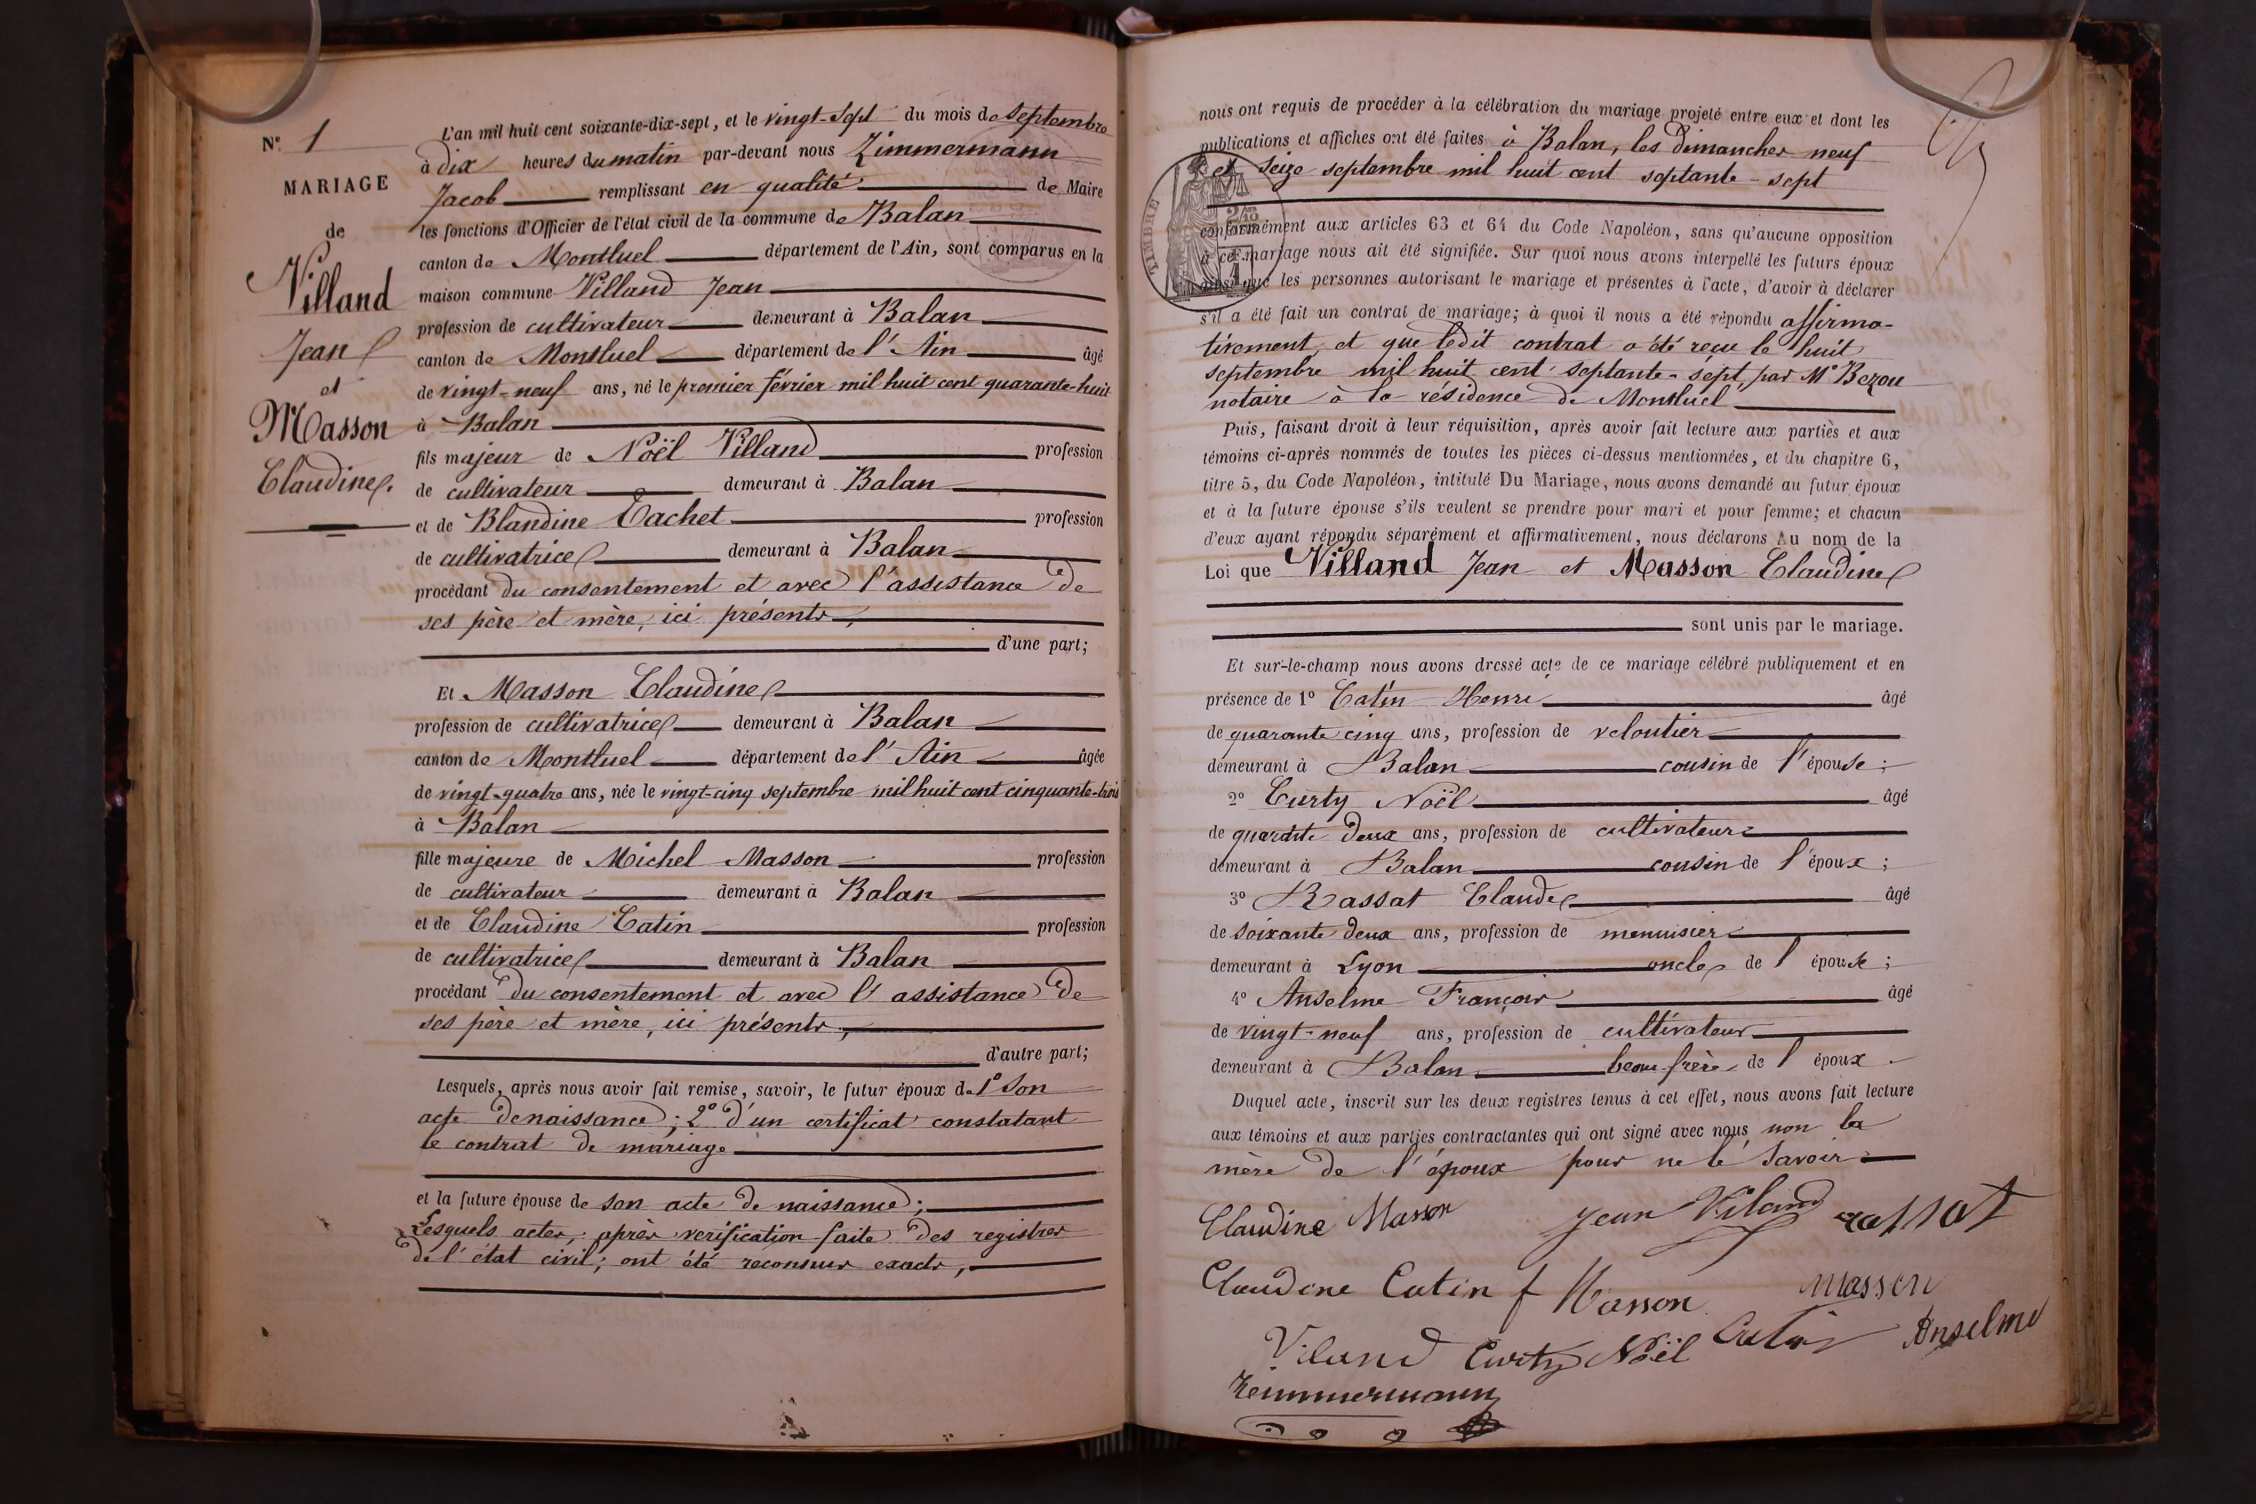 N° 1
MARIAGE
de
Villand
Jean
et
Masson
Claudine.
L'an mil huit cent soixante-dix-sept, et le vingt-sept du mois de septembre
à dix heures du matin par-devant nous Zimmermann
Jacob remplissant en qualité de Maire
les fonctions d'Officier de l'état civil de la commune de Balan
canton de Montluel département de l'Ain, sont comparus en la
maison commune Villand Jean
profession de cultivateur demeurant à Balan
canton de Montluel département de l'Ain âgé
de vingt-neuf ans, né le premier février mil huit cent quarante-huit
à Balan
fils majeur de Noël Villand profession
de cultivateur demeurant à Balan
et de Blandine Cachet profession
de cultivatrice demeurant à Balan
procédant du consentement et avec l'assistance de
ses père et mère, ici présents,
d'une part;
Et Masson Claudine
profession de cultivatrice demeurant à Balan
canton de Montluel département de l'Ain âgée
de vingt-quatre ans, née le vingt-cinq septembre mil huit cent cinquante-trois
à Balan
fille majeure de Michel Masson profession
de cultivateur demeurant à Balan
et de Claudine Catin profession
de cultivatrice demeurant à Balan
procédant du consentement et avec l'assistance de
ses père et mère, ici présents,
d'autre part;
Lesquels, après nous avoir fait remise, savoir, le futur époux de 1° son
acte de naissance; 2° d'un certificat constatant
le contrat de mariage
et la future épouse de son acte de naissance;
Lesquels actes, après verification faite des registres
de l'état civil; ont été reconnus exacts,
nous ont requis de procéder à la célébration du mariage projeté entre eux et dont les
publications et affiches ont été faites à Balan, les dimanches neuf
et seize septembre mil huit cent septante-sept
TIMBRE
conformément aux articles 63 et 64 du Code Napoléon, sans qu'aucune opposition
à ce mariage nous ait été signifiée. Sur quoi nous avons interpellé les futurs époux
ainsi que les personnes autorisant le mariage et présentes à l'acte, d'avoir à déclarer
s'il a été fait un contrat de mariage; à quoi il nous a été répondu affirma-
tivement, et que ledit contrat a été reçu le huit
septembre mil huit cent septante-sept, par Me Bezou
notaire à la résidence de Montluel
Puis, faisant droit à leur réquisition, après avoir fait lecture aux parties et aux
témoins ci-après nommés de toutes les pièces ci-dessus mentionnées, et du chapitre 6,
titre 5, du Code Napoléon, intitulé Du Mariage, nous avons demandé au futur époux
et à la future épouse s'ils veulent se prendre pour mari et pour femme; et chacun
d'eux ayant répondu séparément et affirmativement, nous déclarons au nom de la
Loi que Villand Jean et Masson Claudine
sont unis par le mariage.
Et sur-le-champ nous avons dressé acte de ce mariage célébré publiquement et en
présence de 1° Catin Henri âgé
de quarante cinq ans, profession de veloutier
demeurant à Balan cousin de l'épouse;
2° Curty Noël âgé
de quarante deux ans, profession de cultivateur
demeurant à Balan cousin de l'époux;
3° Rassat Claude âgé
de soixante deux ans, profession de menuisier
demeurant à Lyon oncle de l'épouse;
4° Anselme François âgé
de vingt-neuf ans, profession de cultivateur
demeurant à Balan beau-frère de l'époux.
Duquel acte, inscrit sur les deux registres tenus à cet effet, nous avons fait lecture
aux témoins et aux parties contractantes qui ont signé avec nous, non la
mère de l'époux pour ne le savoir
Claudine Masson Jean Viland rassat
Claudine Catin f Masson Masson
Viland Curty Noël Catin Anselme
Zimmermann